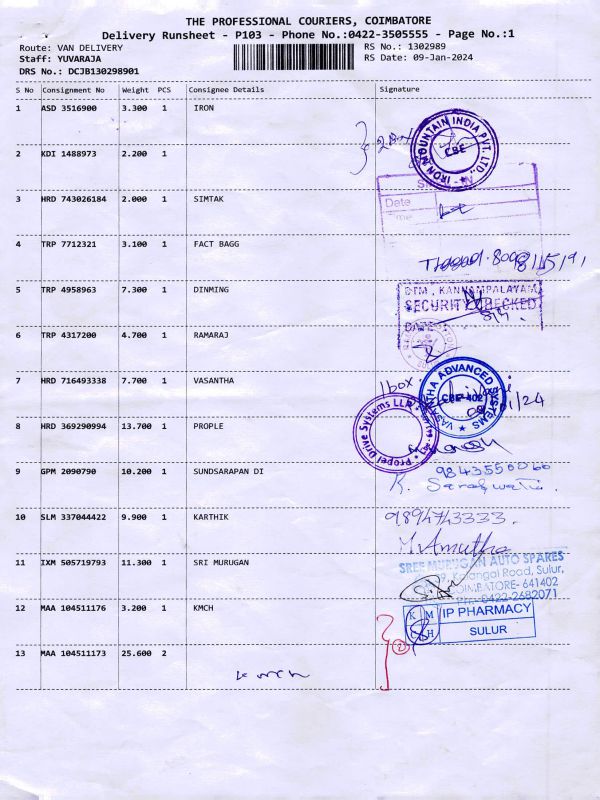 THE PROFESSIONAL COURIERS, COIMBATORE
Delivery Runsheet - P103 - Phone No.:0422-3505555 - Page No.:1
Route: VAN DELIVERY RS No.: 1302989
Staff: YUVARAJA RS Date: 09-Jan-2024
DRS No.: DCJB130298901
S No Consignment No Weight PCS Consignee Details Signature
1 ASD 3516900 3.300 1 IRON
IRON MOUNTAIN INDIA PVT. LTD.,
CBE
2 KDI 1488973 2.200 1
3 HRD 743026184 2.000 1 SIMTAK
Date
Time
4 TRP 7712321 3.100 1 FACT BAGG
5 TRP 4958963 7.300 1 DINMING
SECURITY CHECKED
DATE
6 TRP 4317200 4.700 1 RAMARAJ
7 HRD 716493338 7.700 1 VASANTHA
1 box.
VASANTHA ADVANCED SYSTEMS
CBE-402
8 HRD 369290994 13.700 1 PROPLE
Propel Drive Systems LLP
9 GPM 2090790 10.200 1 SUNDSARAPAN DI
9843550060
K. Saraswathi
10 SLM 337044422 9.900 1 KARTHIK
9894743333.
M. Amutha
11 IXM 505719793 11.300 1 SRI MURUGAN
SREE MURUGAN AUTO SPARES
Kalangal Road, Sulur,
COIMBATORE- 641402
Ph: 0422-2682071
12 MAA 104511176 3.200 1 KMCH
K M C H
IP PHARMACY
SULUR
13 MAA 104511173 25.600 2
2
kmch